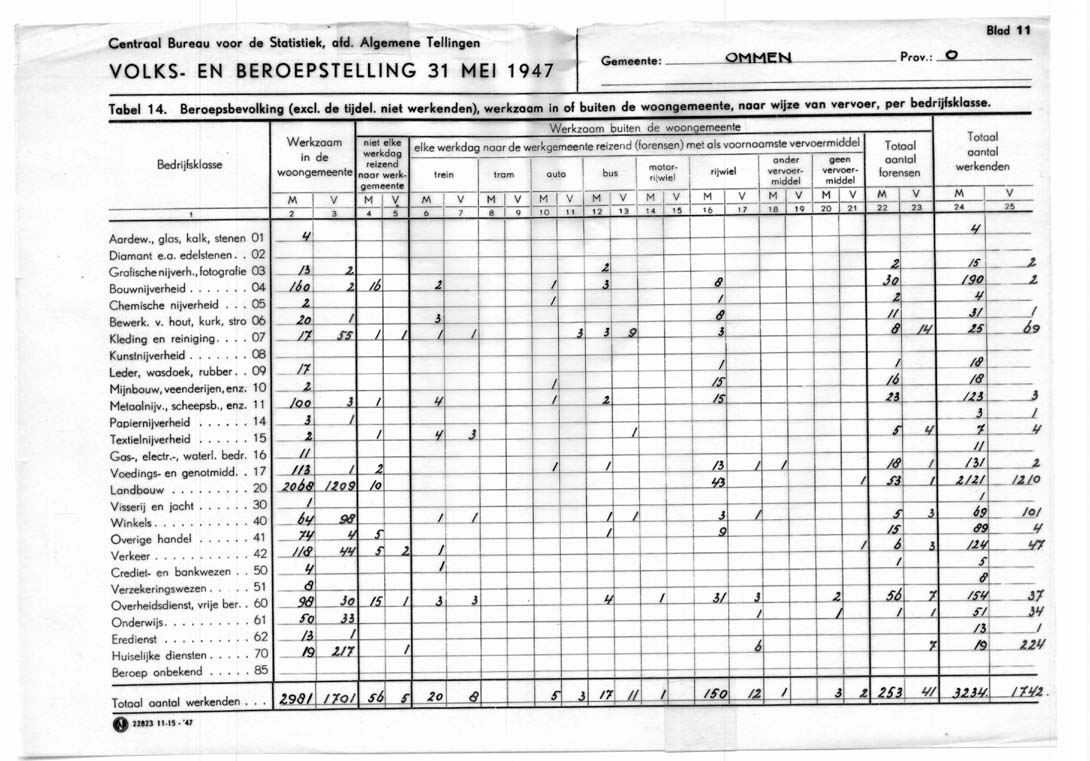 Blad 11
Centraal Bureau voor de Statistiek, afd. Algemene Tellingen
VOLKS- EN BEROEPSTELLING 31 MEI 1947
Gemeente: OMMEN Prov.: O
Tabel 14. Beroepsbevolking (excl. de tijdel. niet werkenden), werkzaam in of buiten de woongemeente, naar wijze van vervoer, per bedrijfsklasse.
Bedrijfsklasse
Werkzaam in de woongemeente
Werkzaam buiten de woongemeente
niet elke werkdag reizend naar werkgemeente
elke werkdag naar de werkgemeente reizend (forensen) met als voornaamste vervoermiddel
trein tram auto bus motor-rijwiel rijwiel ander vervoer-middel geen vervoer-middel
Totaal aantal forensen
Totaal aantal werkenden
M V M V M V M V M V M V M V M V M V M V M V M V
1 2 3 4 5 6 7 8 9 10 11 12 13 14 15 16 17 18 19 20 21 22 23 24 25
Aardew., glas, kalk, stenen 01 4 4
Diamant e.a. edelstenen . . 02
Grafische nijverh., fotografie 03 13 2 2 2 15 2
Bouwnijverheid . . . . . . . 04 160 2 16 2 1 3 8 30 190 2
Chemische nijverheid . . . 05 2 1 1 2 4
Bewerk. v. hout, kurk, stro 06 20 1 3 8 11 31 1
Kleding en reiniging. . . . 07 17 55 1 1 1 1 3 3 9 3 8 14 25 69
Kunstnijverheid . . . . . . . 08
Leder, wasdoek, rubber. . 09 17 1 1 18
Mijnbouw, veenderijen, enz. 10 2 1 15 16 18
Metaalnijv., scheepsb., enz. 11 100 3 1 4 1 2 15 23 123 3
Papiernijverheid . . . . . . 14 3 1 3 1
Textielnijverheid . . . . . . 15 2 1 4 3 1 5 4 7 4
Gas-, electr.-, waterl. bedr. 16 11 11
Voedings- en genotmidd. . 17 113 1 2 1 1 13 1 1 18 1 131 2
Landbouw . . . . . . . . . 20 2068 1209 10 43 1 53 1 2121 1210
Visserij en jacht . . . . . . 30 1 1
Winkels. . . . . . . . . . . 40 64 98 1 1 1 1 3 1 5 3 69 101
Overige handel . . . . . . 41 74 4 5 1 9 15 89 4
Verkeer . . . . . . . . . . 42 118 44 5 2 1 1 6 3 124 47
Crediet- en bankwezen . . 50 4 1 1 5
Verzekeringswezen. . . . . 51 8 8
Overheidsdienst, vrije ber. . 60 98 30 15 1 3 3 4 1 31 3 2 56 7 154 37
Onderwijs. . . . . . . . . . 61 50 33 1 1 1 1 51 34
Eredienst . . . . . . . . . 62 13 1 13 1
Huiselijke diensten . . . . . 70 19 217 1 6 7 19 224
Beroep onbekend . . . . . 85
Totaal aantal werkenden . . . 2981 1701 56 5 20 8 5 3 17 11 1 150 12 1 3 2 253 41 3234 1742
22823 11-15-'47